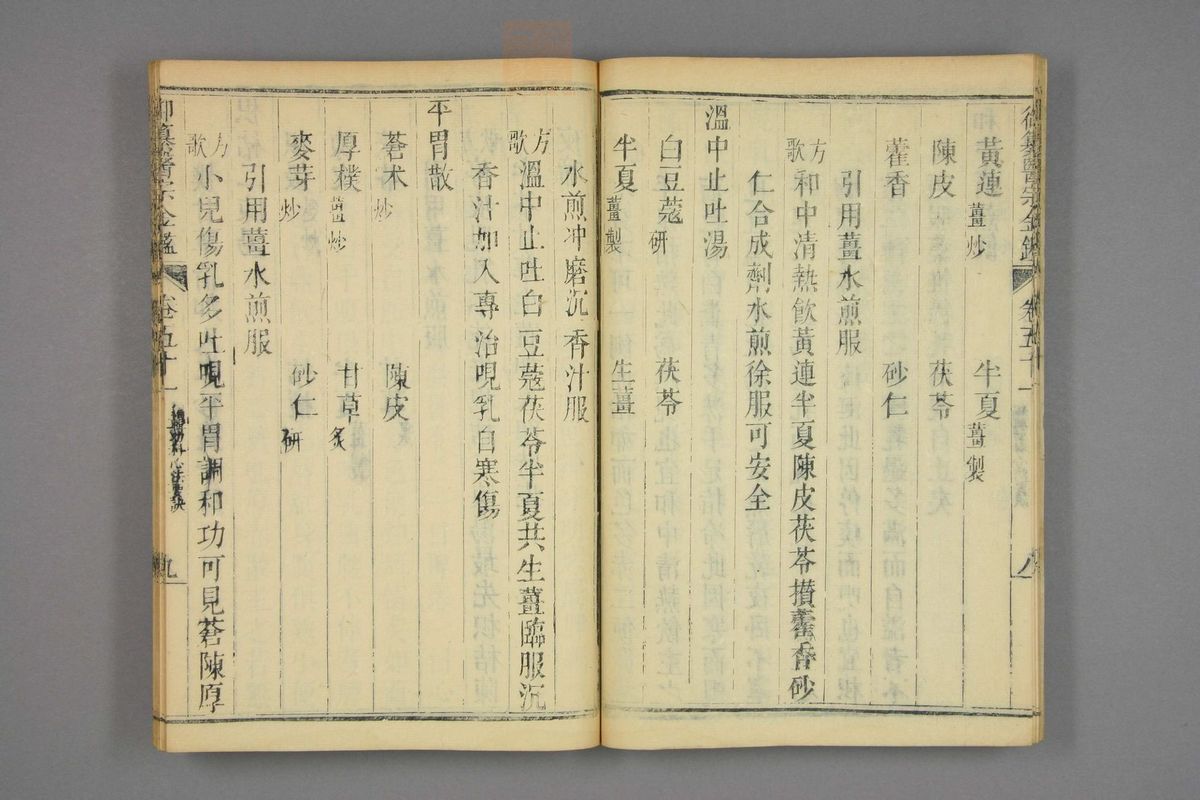 御纂醫宗金鑑 卷五十一 八
黃連薑炒 半夏薑製
陳皮 茯苓
藿香 砂仁
引用薑水煎服
方歌 和中清熱飲黃連半夏陳皮茯苓攢藿香砂
仁合成劑水煎徐服可安全
溫中止吐湯
白豆蔻研 茯苓
半夏薑製 生薑
水煎冲磨沉香汁服
方歌 溫中止吐白豆蔻茯苓半夏共生薑臨服沉
香汁加入專治哯乳自寒傷
平胃散
蒼朮炒 陳皮
厚樸薑炒 甘草炙
麥芽炒 砂仁研
引用薑水煎服
方歌 小兒傷乳多吐哯平胃調和功可見蒼陳厚
御纂醫宗金鑑 卷五十一 九